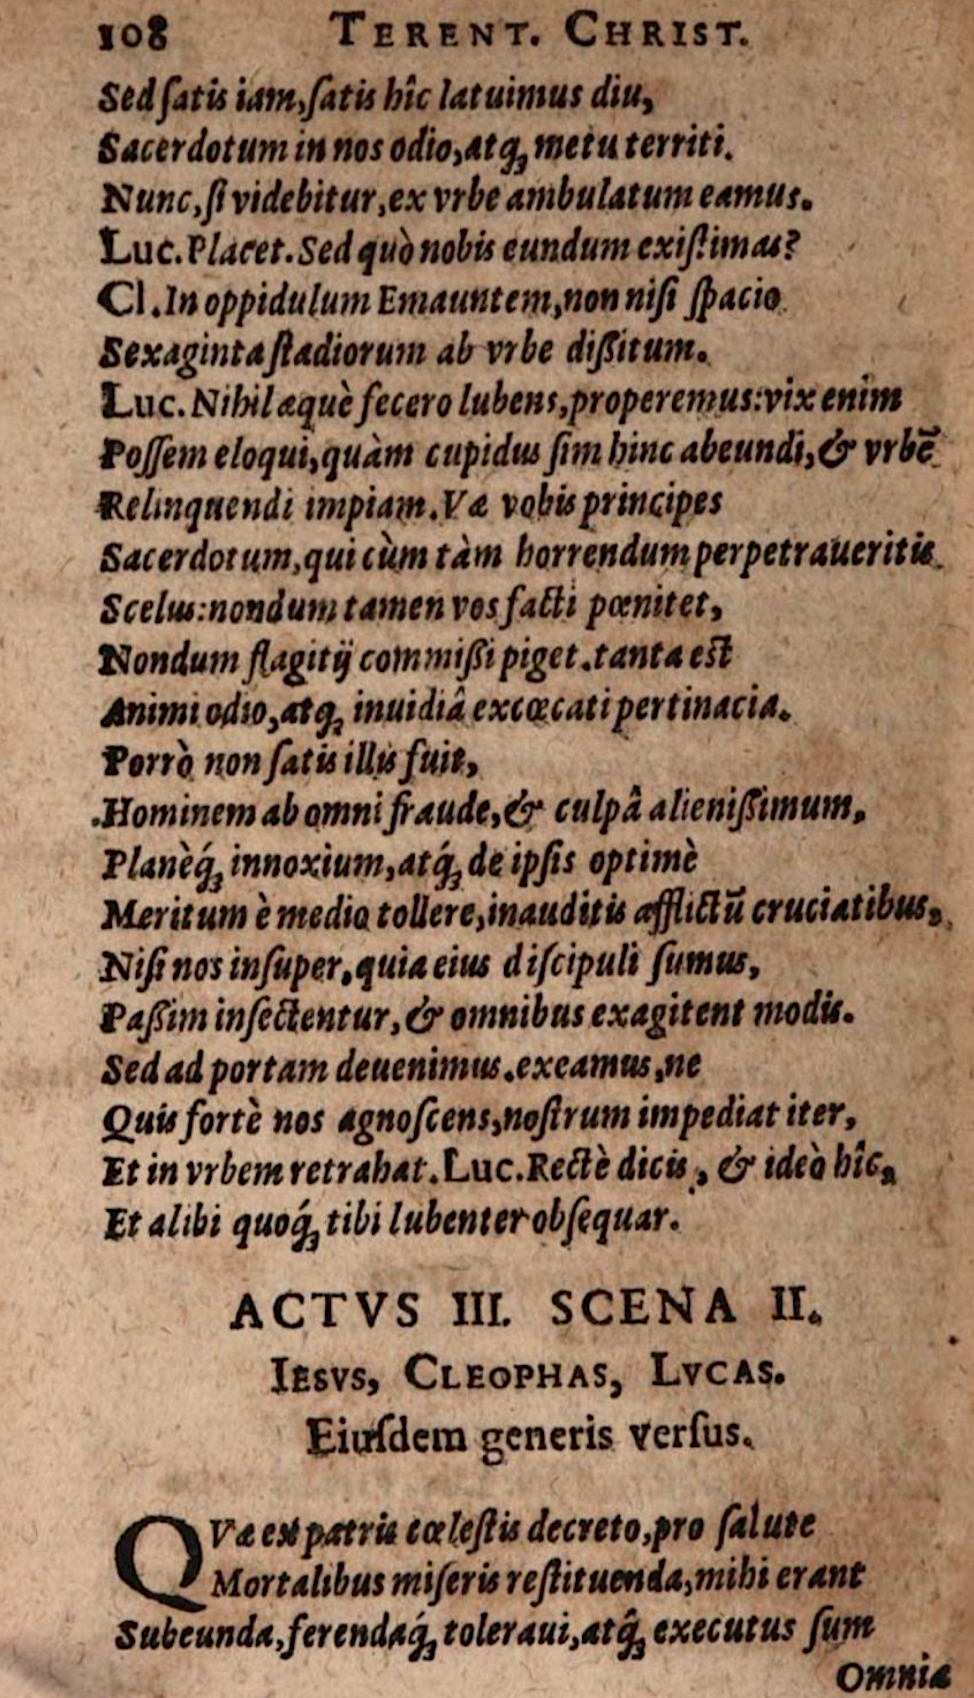 108 TERENT. CHRIST.
Sed ſatis iam, ſatis hîc latuimus diu,
Sacerdotum in nos odio, atq; metu territi.
Nunc, ſi videbitur, ex vrbe ambulatum eamus.
Luc. Placet. Sed quò nobis eundum exiſtimas?
Cl. In oppidulum Emauntem, non niſi ſpacio
Sexaginta ſtadiorum ab vrbe diſsitum.
Luc. Nihil æquè fecero lubens, properemus: vix enim
Poſſem eloqui, quàm cupidus ſim hinc abeundi, & vrbē
Relinquendi impiam. Væ vobis principes
Sacerdotum, qui cùm tàm horrendum perpetraueritis
Scelus: nondum tamen vos facti pœnitet,
Nondum flagitij commiſsi piget. tanta eſt
Animi odio, atq; inuidiâ excœcati pertinacia.
Porrò non ſatis illis fuit,
Hominem ab omni fraude, & culpâ alieniſsimum,
Planèq́; innoxium, atq́; de ipſis optimè
Meritum è medio tollere, inauditis afflictū cruciatibus,
Niſi nos inſuper, quia eius diſcipuli ſumus,
Paſsim inſectentur, & omnibus exagitent modis.
Sed ad portam deuenimus. exeamus, ne
Quis fortè nos agnoſcens, noſtrum impediat iter,
Et in vrbem retrahat. Luc. Rectè dicis, & ideò hîc,
Et alibi quoq́; tibi lubenter obſequar.
ACTVS III. SCENA II.
IESVS, CLEOPHAS, LVCAS.
Eiuſdem generis verſus.
QVæ ex patris cœleſtis decreto, pro ſalute
Mortalibus miſeris reſtituenda, mihi erant
Subeunda, ferendaq́; toleraui, atq̂; executus ſum
Omnia